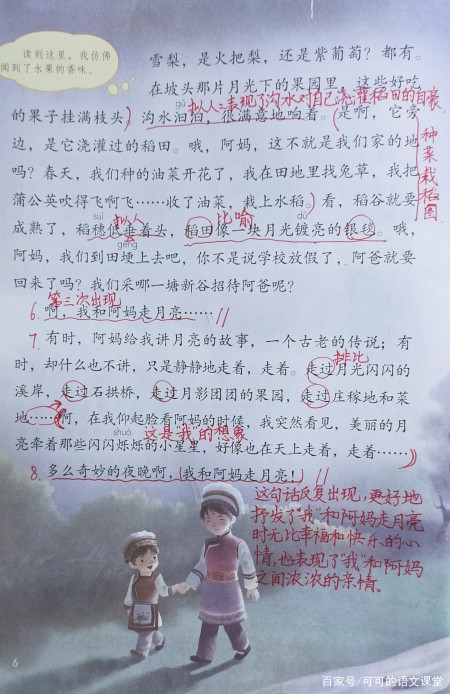 读到这里，我仿佛
闻到了水果的香味。
雪梨，是火把梨，还是紫葡萄？都有。
在坡头那片月光下的果园里，这些好吃
拟人：表现了沟水对自己浇灌稻田的自豪
gǔ
的果子挂满枝头）沟水汩汩，很满意地响着。（是啊，它旁
边，是它浇灌过的稻田。哦，阿妈，这不就是我们家的地
种菜栽稻图
吗？春天，我们种的油菜开花了，我在田地里找兔草，我把
蒲公英吹得飞啊飞……收了油菜，栽上水稻。）看，稻谷就要
suì 拟人 比喻 dù
成熟了，稻穗低垂着头，稻田像一块月光镀亮的银毯。哦，
gěng
阿妈，我们到田埂上去吧，你不是说学校放假了，阿爸就要
回来了吗？我们采哪一塘新谷招待阿爸呢？
第三次出现
6. 啊，我和阿妈走月亮……
7. 有时，阿妈给我讲月亮的故事，一个古老的传说；有
排比
时，却什么也不讲，只是静静地走着，走着。走过月光闪闪的
溪岸，走过石拱桥，走过月影团团的果园，走过庄稼地和菜
地……啊，在我仰起脸看阿妈的时候，我突然看见，美丽的月
shuò 这是“我”的想象
亮牵着那些闪闪烁烁的小星星，好像也在天上走着，走着……）
8. 多么奇妙的夜晚啊，我和阿妈走月亮！
这句话反复出现，更好地
抒发了“我”和阿妈走月亮
时无比幸福和快乐的心
情，也表现了“我”和阿妈
之间浓浓的亲情。
6
百家号/可可的语文课堂